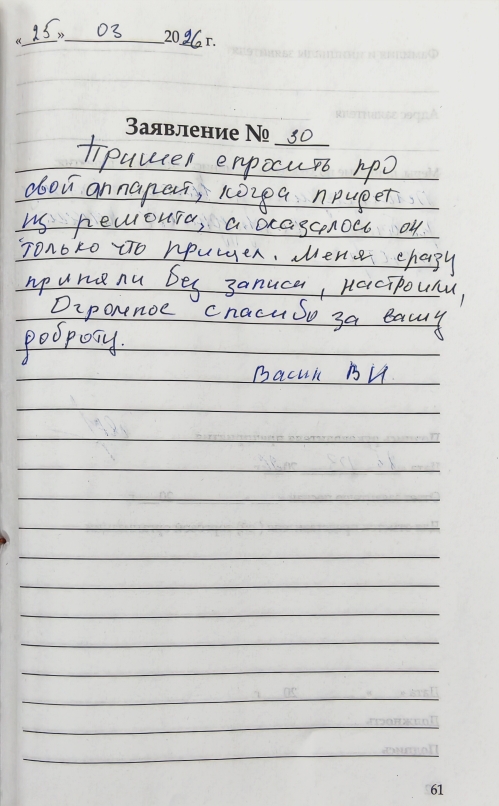 «25» 03 2026 г.
Заявление № 30
Пришел спросить про
свой аппарат, когда придет
из ремонта, а оказалось он
только что пришел. Меня сразу
приняли без записи, настроили,
Огромное спасибо за вашу
доброту.
Васин В И.
61